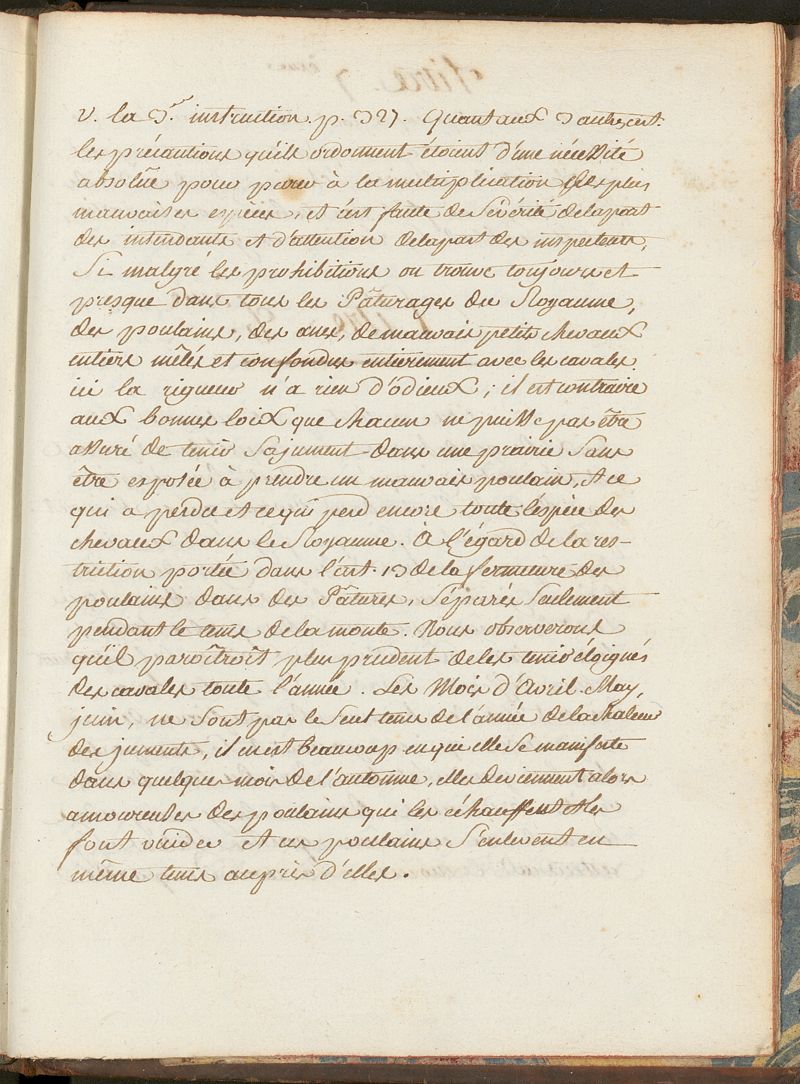 v. la 3.e instruction. p. 327. quant aux 3 autres, cert.
les précautions qu'ils ordonnent étoient d'une nécessité
absolüe pour parer à la multiplication des plus
mauvaises espèces, et c'est faute de sévérité de la part
des intendants et d'attention de la part des inspecteurs,
Si malgré les prohibitions on trouve toujours et
presque dans tous les Pâturages du Royaume,
des poulains, des anes, de mauvais petits chevaux
entiers mêlés et confondus entièrement avec les cavales.
ici la rigueur n'a rien d'odieux; il est contraire
aux bonnes loix que chacun ne puisse pas être
assuré de tenir sa jument dans une prairie sans
être exposée à prendre un mauvais poulain, et ce
qui a perdu et ce qui perd encore toute l'espèce des
chevaux dans le Royaume. À l'égard de la res-
triction portée dans l'art. 13 de la fermeture des
poulains dans des Pâtures, séparés seulement
pendant le tems de la monte. Nous observerons
qu'il paroîtroit plus prudent de les tenir éloignés
des cavales toute l'année. Les Mois d'Avril May,
juin, ne sont pas le seul tems de l'année de la chaleur
des juments, il en est beaucoup en qui elle se manifeste
dans quelques mois de l'automne, elles deviennent alors
amoureuses des poulains qui les échauffent et les
font vuider et ces poulains s'enlevent en
même tems auprès d'elles.